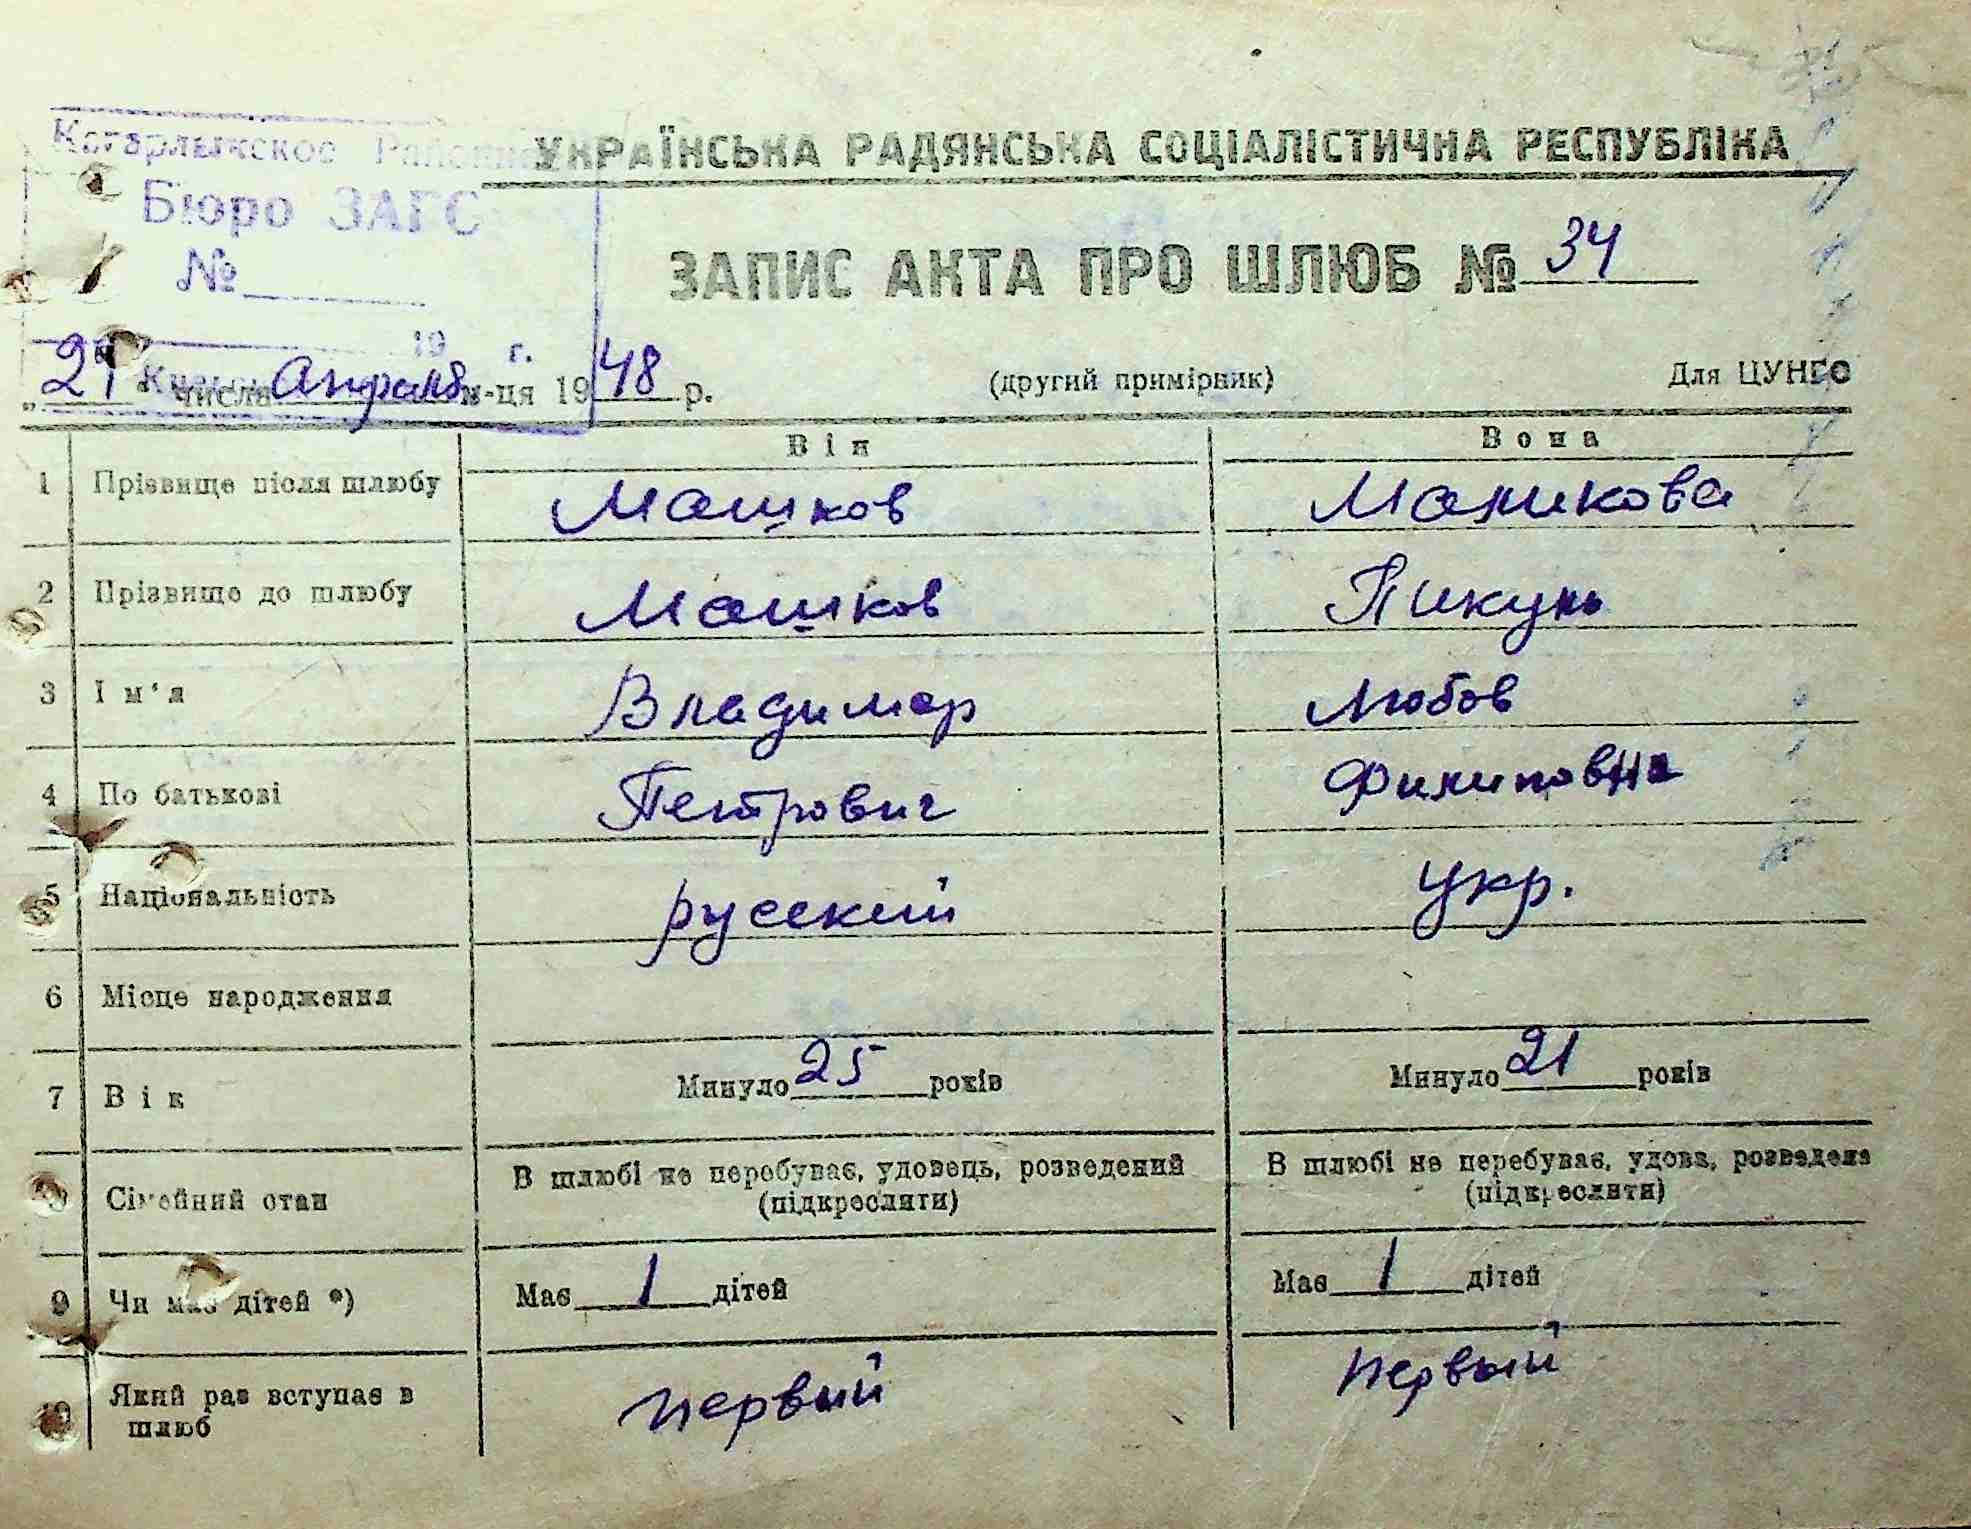 Кагарлыкское Районн
УКРАЇНСЬКА РАДЯНСЬКА СОЦІАЛІСТИЧНА РЕСПУБЛІКА
Бюро ЗАГС
№
ЗАПИС АКТА ПРО ШЛЮБ № 34
19 г.
числа Апрель м-ця 1948 р.
(другий примірник)
Для ЦУНГО
Він Вона
1 Прізвище після шлюбу Машков Машкова
2 Прізвище до шлюбу Машков Пикунь
3 Ім'я Владимер Любов
4 По батькові Петрович Филиповна
5 Національність русский укр.
6 Місце народження
7 Вік Минуло 25 років Минуло 21 років
8 Сімейний стан В шлюбі не перебуває, удовець, розведений (підкреслити) В шлюбі не перебуває, удова, розведена (підкреслити)
9 Чи має дітей *) Має 1 дітей Має 1 дітей
10 Який раз вступає в шлюб первый первый